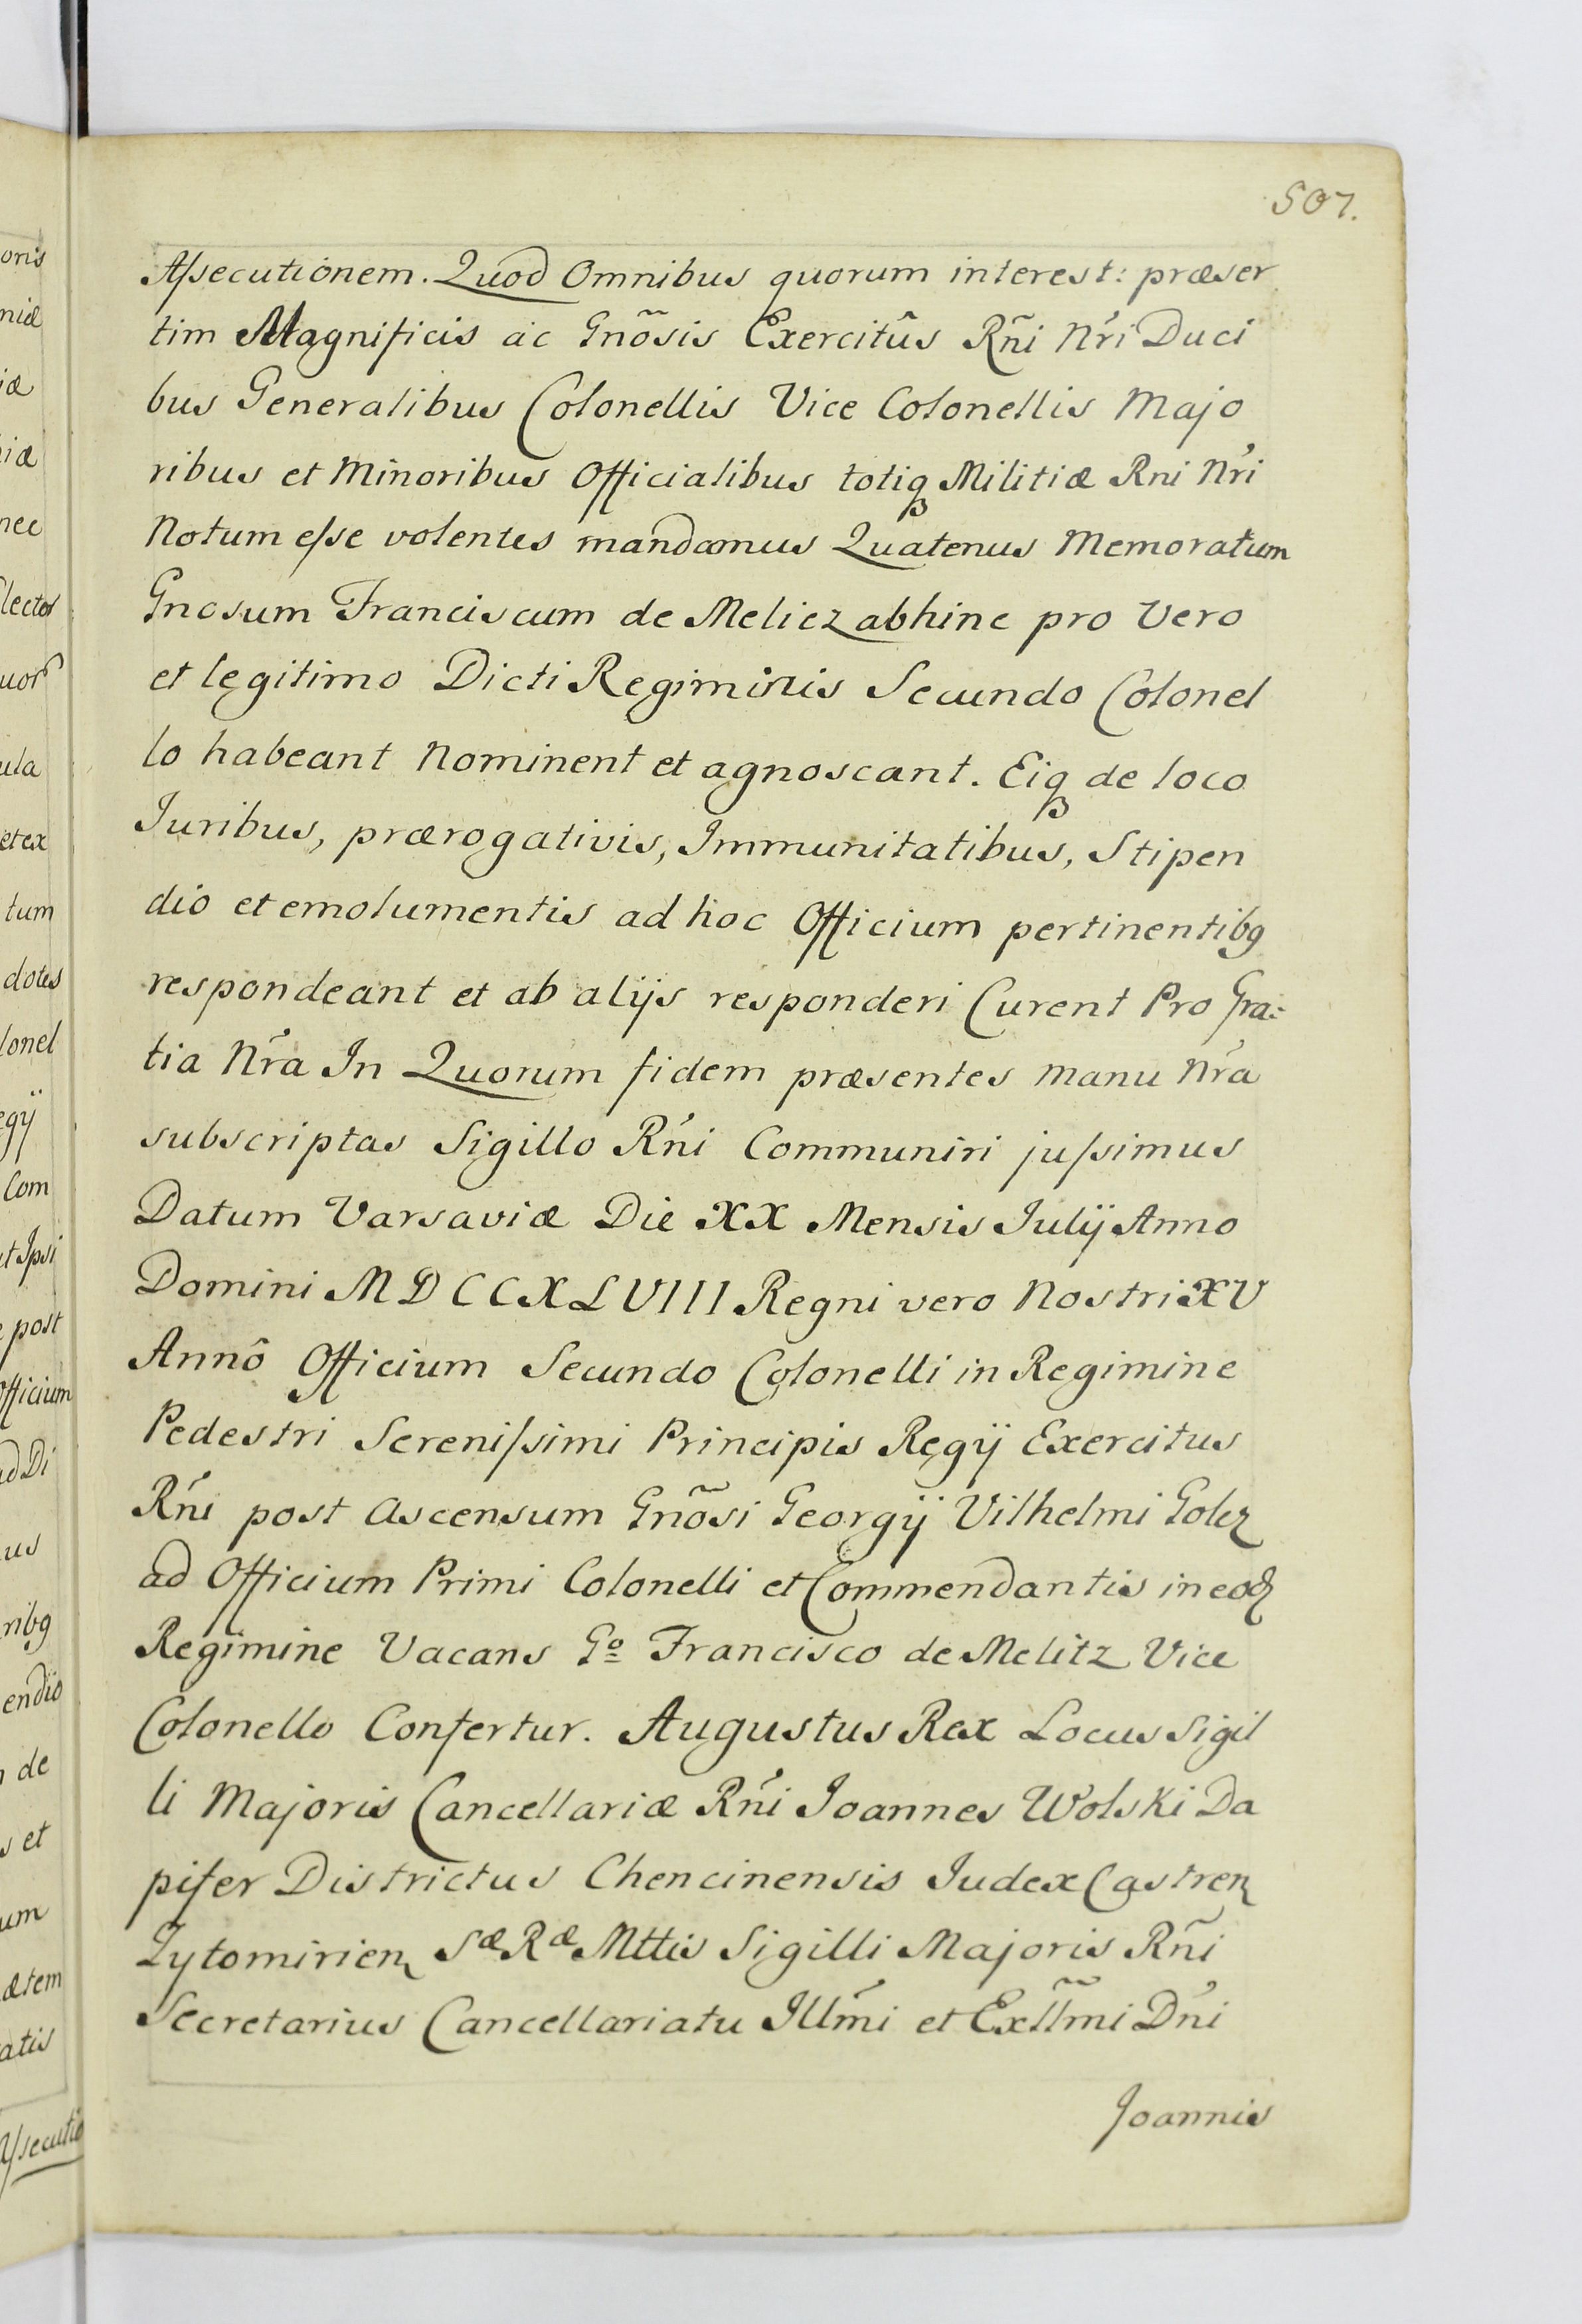 507.
Aſsecutionem. Quod Omnibus quorum interest: præser
tim Magnificis ac Gnõsis Exercitûs Rñi Nri Duci
bus Generalibus Colonellis Vice Colonellis Majo
ribus et Minoribus Officialibus totiq Militiæ Rni Nri
Notum eſse volentes mandamus Quatenus Memoratum
Gnosum Franciscum de Meliez abhinc pro Vero
et legitimo Dicti Regiminis Secundo Colonel
lo habeant Nominent et agnoscant. Eiq de loco
Juribus, prærogativis, Immunitatibus, Stipen
dio et emolumentis ad hoc Officium pertinentibg
respondeant et ab alijs responderi Curent Pro Gra:
tia Nra In Quorum fidem præsentes manu Nra
subscriptas Sigillo Rni Communiri juſsimus
Datum Varsaviæ Die XX Mensis Julij Anno
Domini MDCCXLVIII Regni vero Nostri XV
Annô Officium Secundo Colonelli in Regimine
Pedestri Sereniſsimi Principis Regij Exercitus
Rni post Ascensum Gnõsi Georgij Vilhelmi Golcz
ad Officium Primi Colonelli et Commendantis in eod
Regimine Vacans Go Francisco de Melitz Vice
Colonello Confertur. Augustus Rex Locus Sigil
li Majoris Cancellariæ Rni Joannes Wolski Da
pifer Districtus Chencinensis Judex Castren
Zytomirien Sæ Ræ Mttis Sigilli Majoris Rñi
Secretarius Cancellariatu Illmi et Exllmi Dni
Joannis
oris
niæ
iæ
iæ
nec
lector
uor
ula
et ex
tum
dotes
lonel
egij
Com
et Ipsi
post
Officium
ad Di
us
ribg
endio
de
s et
um
ætem
atis
Aſsecutio